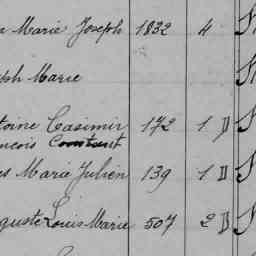 Marie Joseph 1832 4
ph Marie
toine Casimir 172 1 D
ncois Constant
s Marie Julien 139 1 D
guste Louis Marie 507 2 D